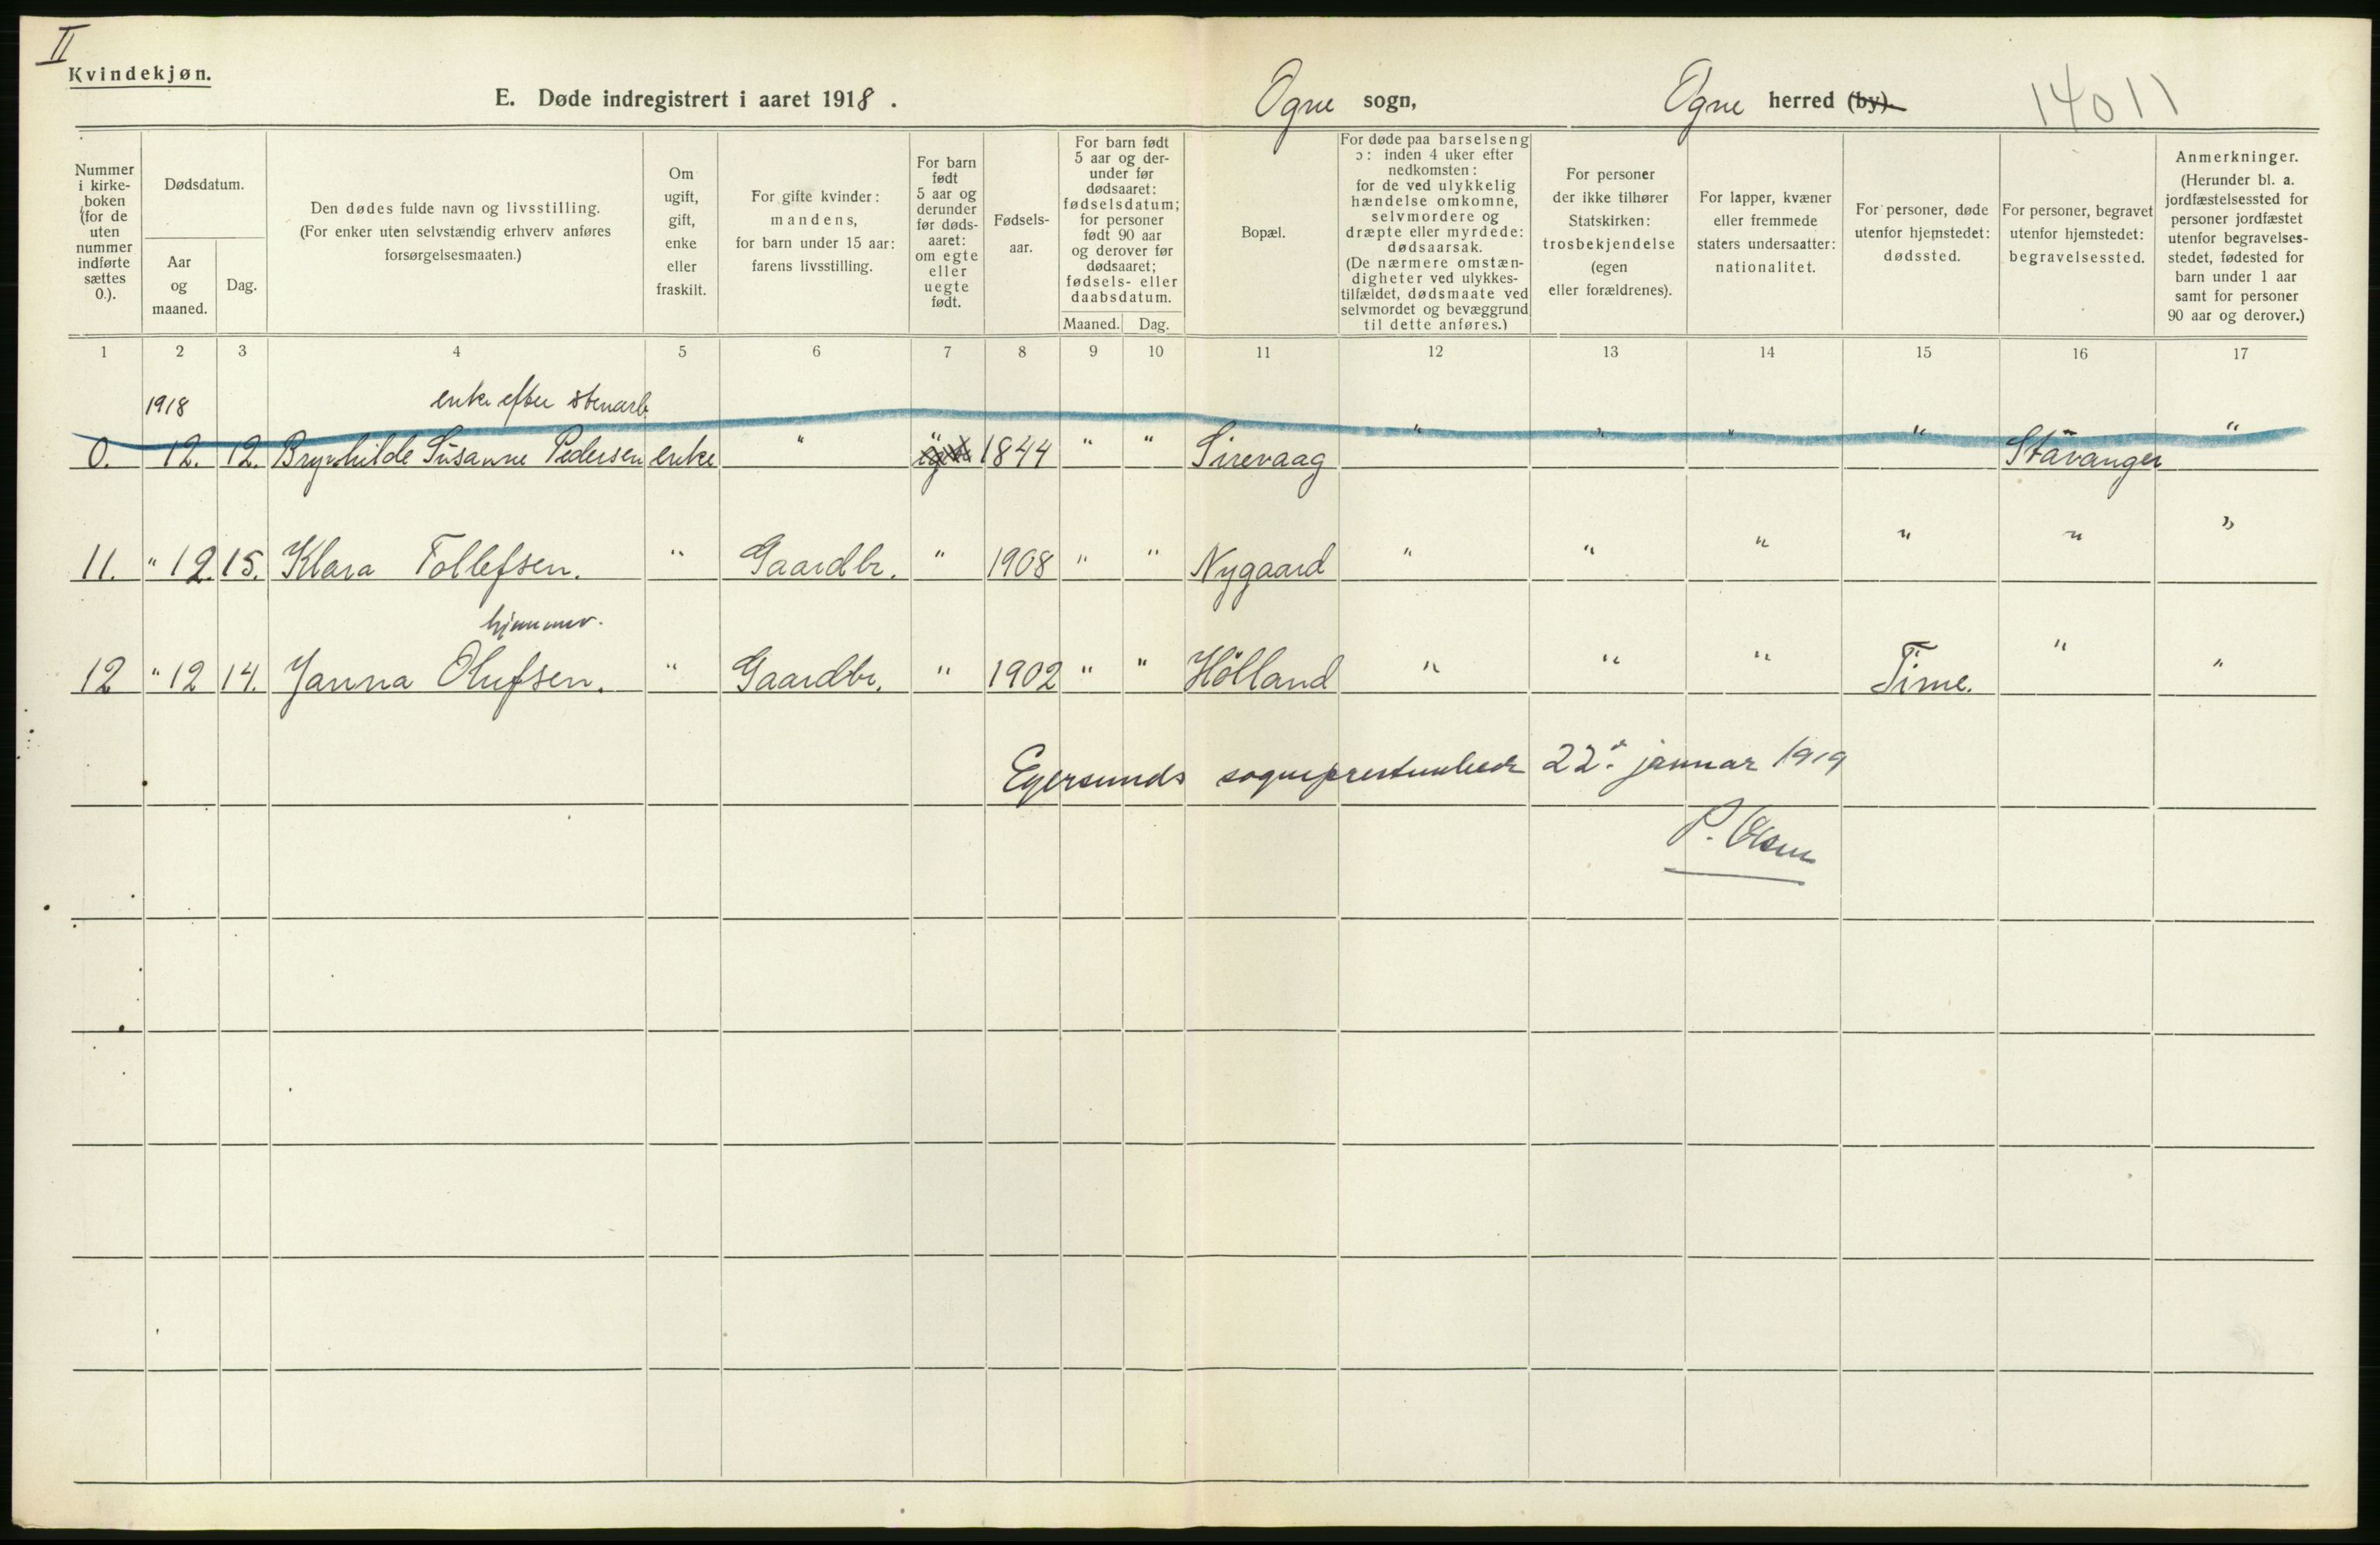 II
Kvindekjøn.
E. Døde indregistrert i aaret 1918. Ogne sogn, Ogne herred (by). 14011
Nummer i kirke-boken (for de uten nummer indførte sættes 0.).
Dødsdatum.
Aar og maaned.
Dag.
Den dødes fulde navn og livsstilling.
(For enker uten selvstændig erhverv anføres
forsørgelsesmaaten.)
Om ugift, gift, enke eller fraskilt.
For gifte kvinder:
mandens,
for barn under 15 aar:
farens livsstilling.
For barn født 5 aar og derunder før døds-aaret: om egte eller uegte født.
Fødsels-aar.
For barn født 5 aar og der-under før dødsaaret: fødselsdatum; for personer født 90 aar og derover før dødsaaret; fødsels- eller daabsdatum.
Maaned.
Dag.
Bopæl.
For døde paa barselseng
ɔ: inden 4 uker efter
nedkomsten:
for de ved ulykkelig
hændelse omkomne,
selvmordere og
dræpte eller myrdede:
dødsaarsak.
(De nærmere omstæn-
digheter ved ulykkes-
tilfældet, dødsmaate ved
selvmordet og bevæggrund
til dette anføres.)
For personer
der ikke tilhører
Statskirken:
trosbekjendelse
(egen
eller forældrenes).
For lapper, kvæner
eller fremmede
staters undersaatter:
nationalitet.
For personer, døde
utenfor hjemstedet:
dødssted.
For personer, begravet
utenfor hjemstedet:
begravelsessted.
Anmerkninger.
(Herunder bl. a.
jordfæstelsessted for
personer jordfæstet
utenfor begravelses-
stedet, fødested for
barn under 1 aar
samt for personer
90 aar og derover.)
1 2 3 4 5 6 7 8 9 10 11 12 13 14 15 16 17
1918 enke efter stenarb.
0. 12. 12. Brynhilde Susanne Pedersen enke " " 1844 " " Sirevaag " " " " Stavanger "
11. " 12. 15. Klara Tollefsen. " Gaardbr. " 1908 " " Nygaard " " " " " "
hjemmev.
12 " 12 14. Janna Olufsen. " Gaardbr. " 1902 " " Hölland " " " Time. " "
Egersunds sogneprestembede 22. januar 1919
P. Olsen